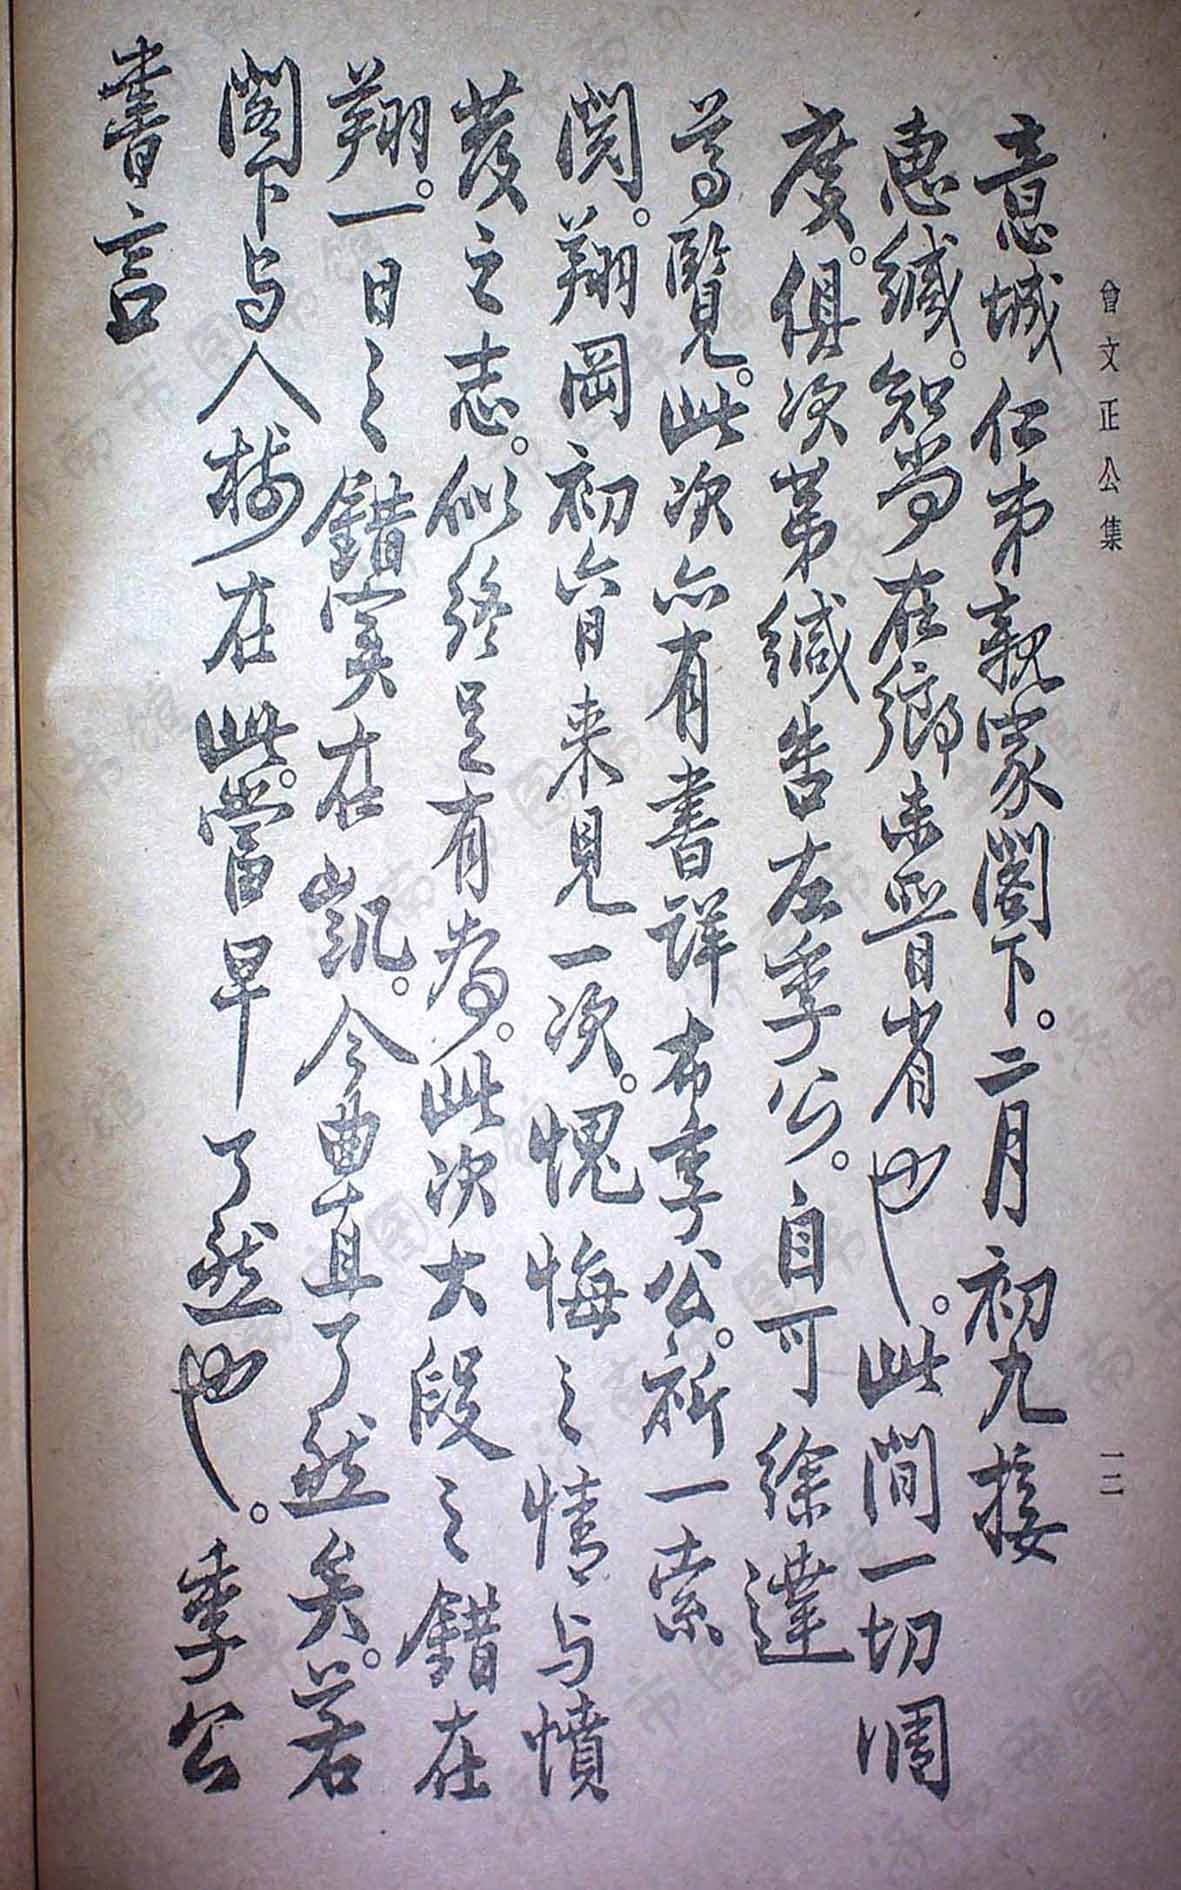 曾文正公集
一二
意城仁弟親家閣下。二月初九接
惠緘。知尚在鄉未晋省也。此間一切調
度。俱次第緘告左季公。自可徐達
尊覽。此次亦有書詳布季公。祈一索
閱。翔岡初六日来見一次。愧悔之情与憤
發之志。似終足有為。此次大段之錯在
翔。一日之錯实在凱。今曲直了然矣。若
閣下与人樹在此。當早了然也。季公
書言